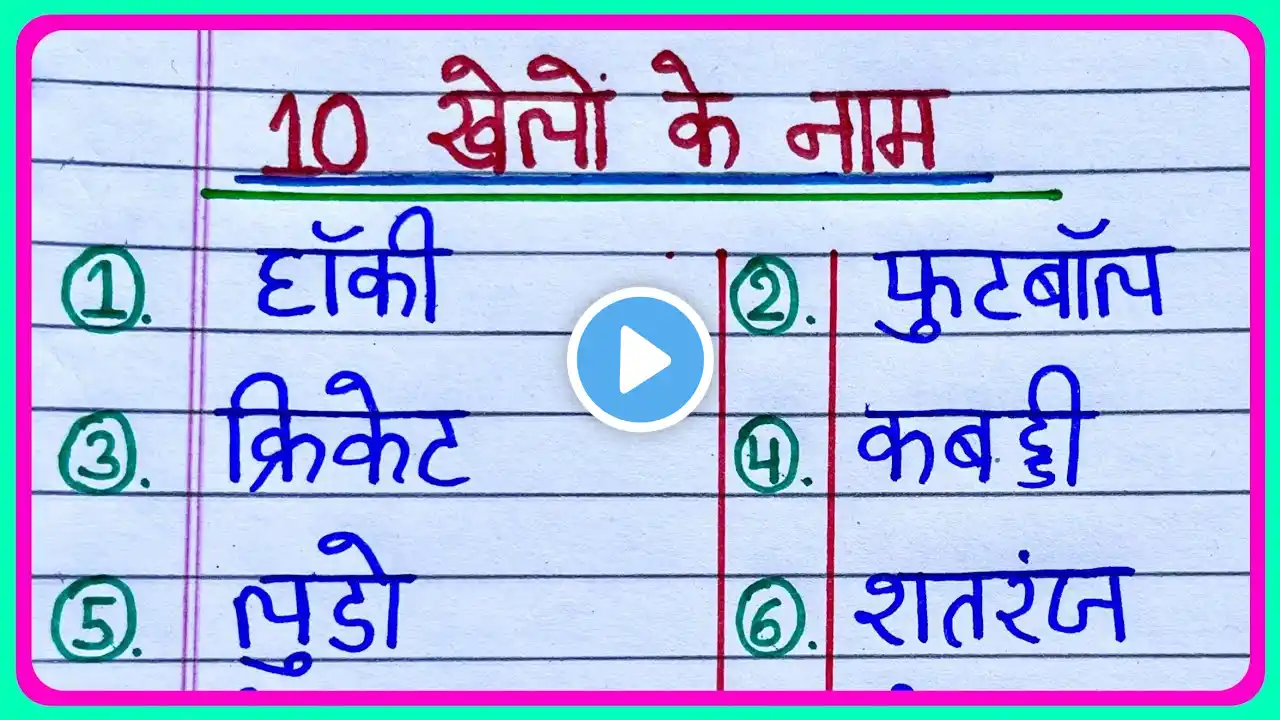 10 खेलों के नाम
1. हॉकी
2. फुटबॉल
3. क्रिकेट
4. कबड्डी
5. लुडो
6. शतरंज